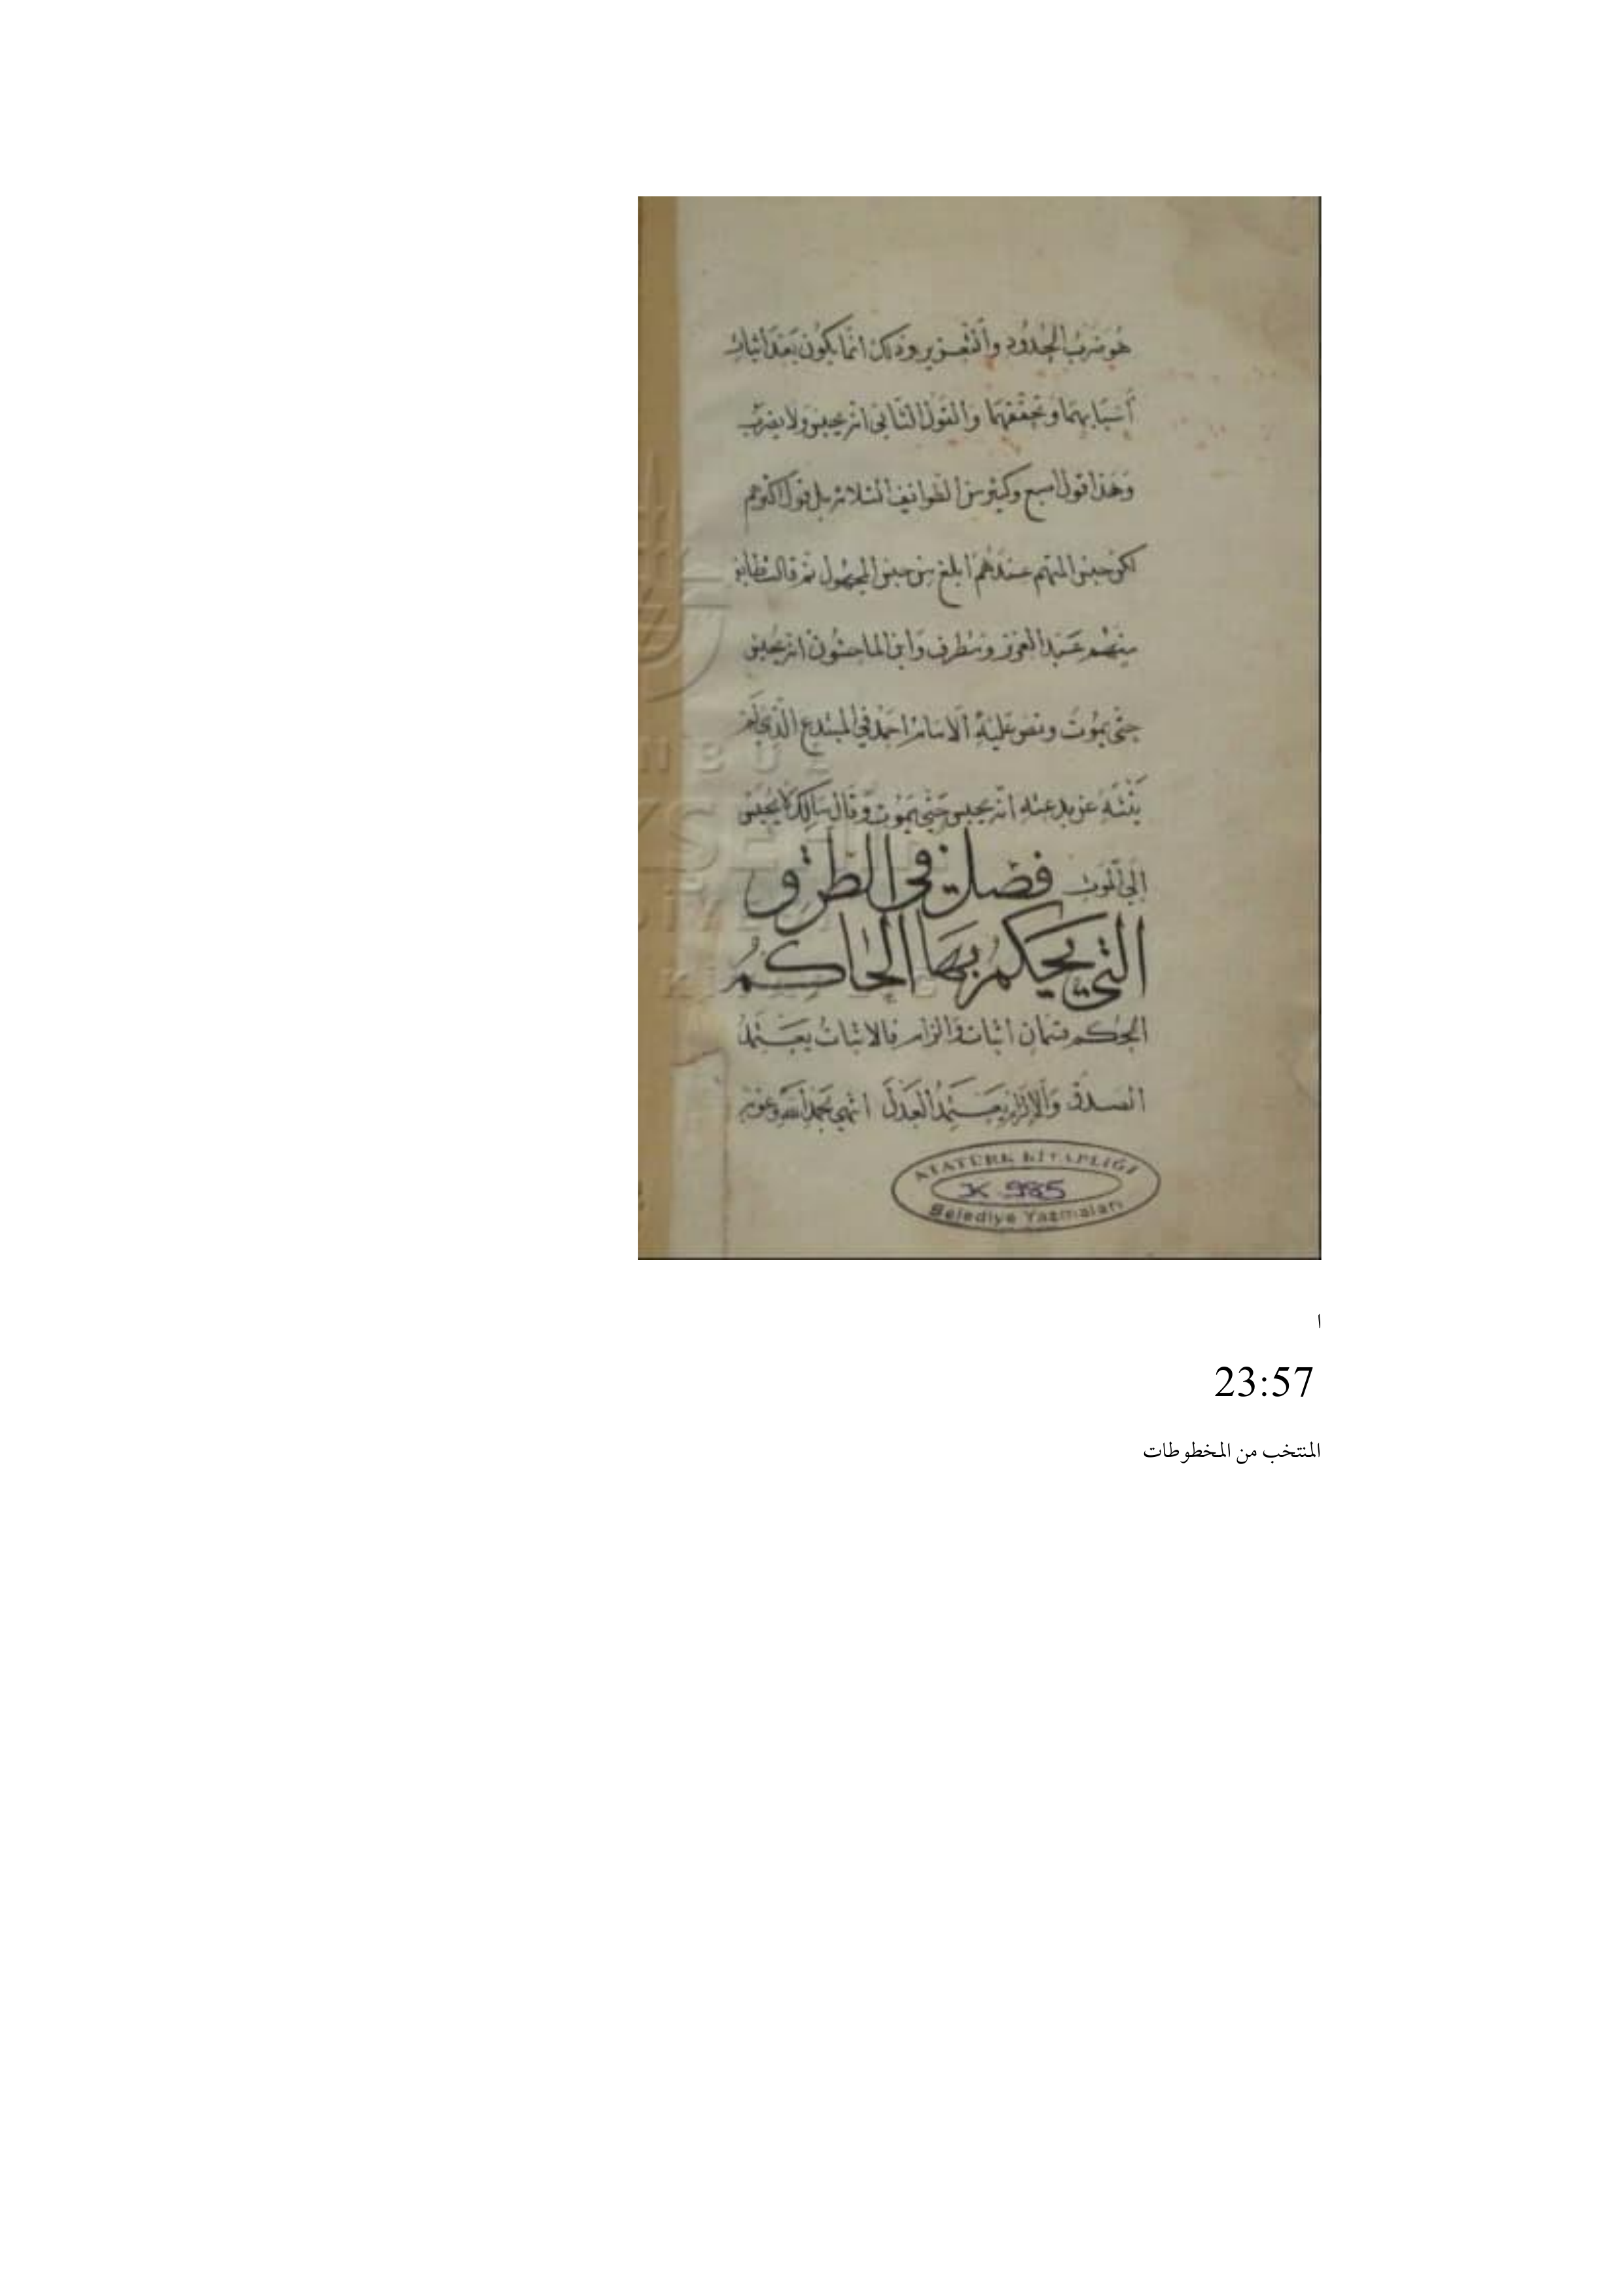 هُو ضربُ الحُدُود والتعزير وذلك انما يكون بعد اثبات
أسبابهما وتحققهما والقول الثاني انه يحبس ولا يضرب
وهذا قول اصبغ وكثير من الطوائف الثلاثة بل قول اكثرهم
لكن حبس المتهم عندهم ابلغ من حبس المجهول ثم قالت طايفة
منهم عمر بن عبد العزيز ومطرف وابن الماجشون انه يحبس
حتى يموت ونص عليه الامام احمد في المبتدع الذي لم
ينته عن بدعته انه يحبس حتى يموت وقال مالك لا يحبس
إلى الموت فصل في الطرق
التي يحكم بها الحاكم
الحكم قسمان اثبات والزام فالاثبات يعتمد
الصدق والالزام يعتمد العدل انتهى بحمد الله وعونه
ATATÜRK KİTAPLIĞI
K 985
Belediye Yazmaları
ا
23:57
المنتخب من المخطوطات